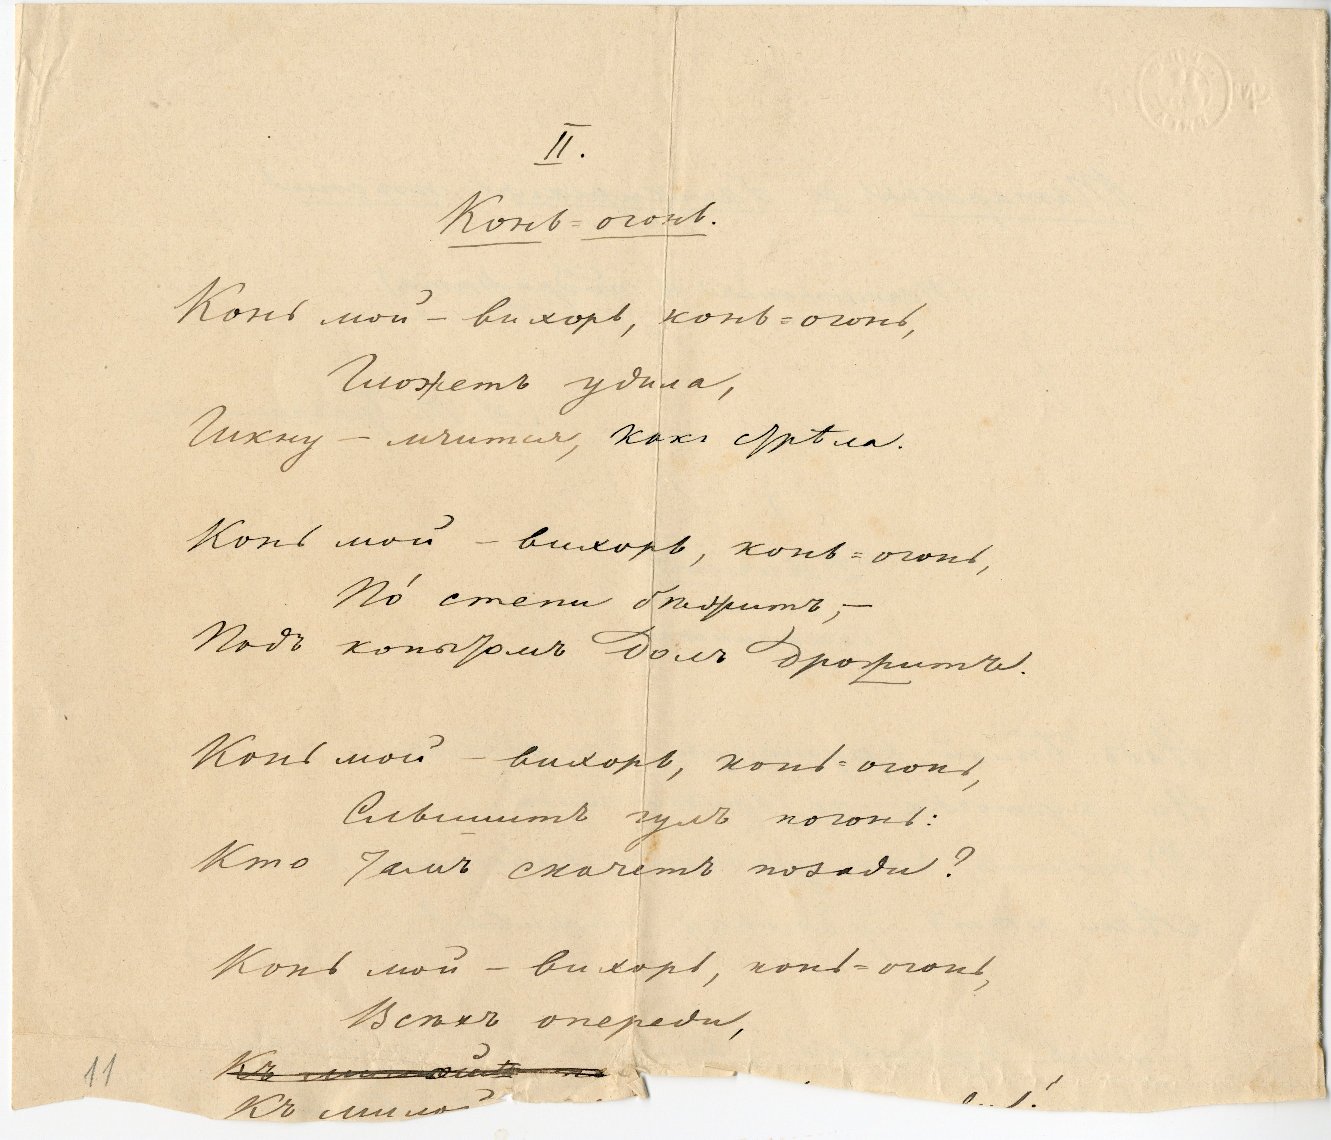 II.
Конь=огонь.
Конь мой – вихорь, конь=огонь,
Гложетъ удила,
Гикну – мчится, какъ стрѣла.
Конь мой – вихорь, конь=огонь,
По́ степи бѣжитъ, –
Подъ копытомъ долъ дрожитъ.
Конь мой – вихорь, конь=огонь,
Слышитъ гулъ погонь:
Кто тамъ скачетъ позади?
Конь мой – вихорь, конь=огонь,
Всѣхъ опереди,
Къ милой
11